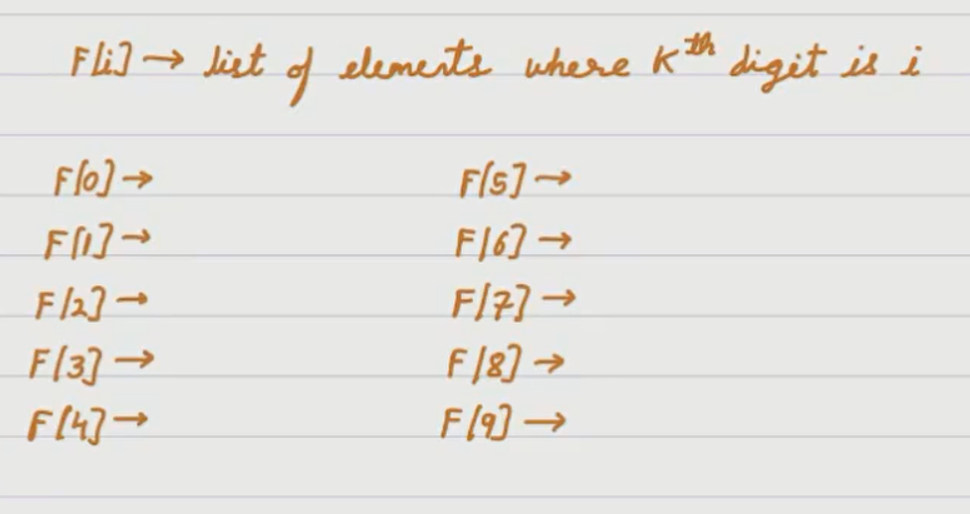 F[i] → list of elements where Kth digit is i
F[0] → F[5] →
F[1] → F[6] →
F[2] → F[7] →
F[3] → F[8] →
F[4] → F[9] →